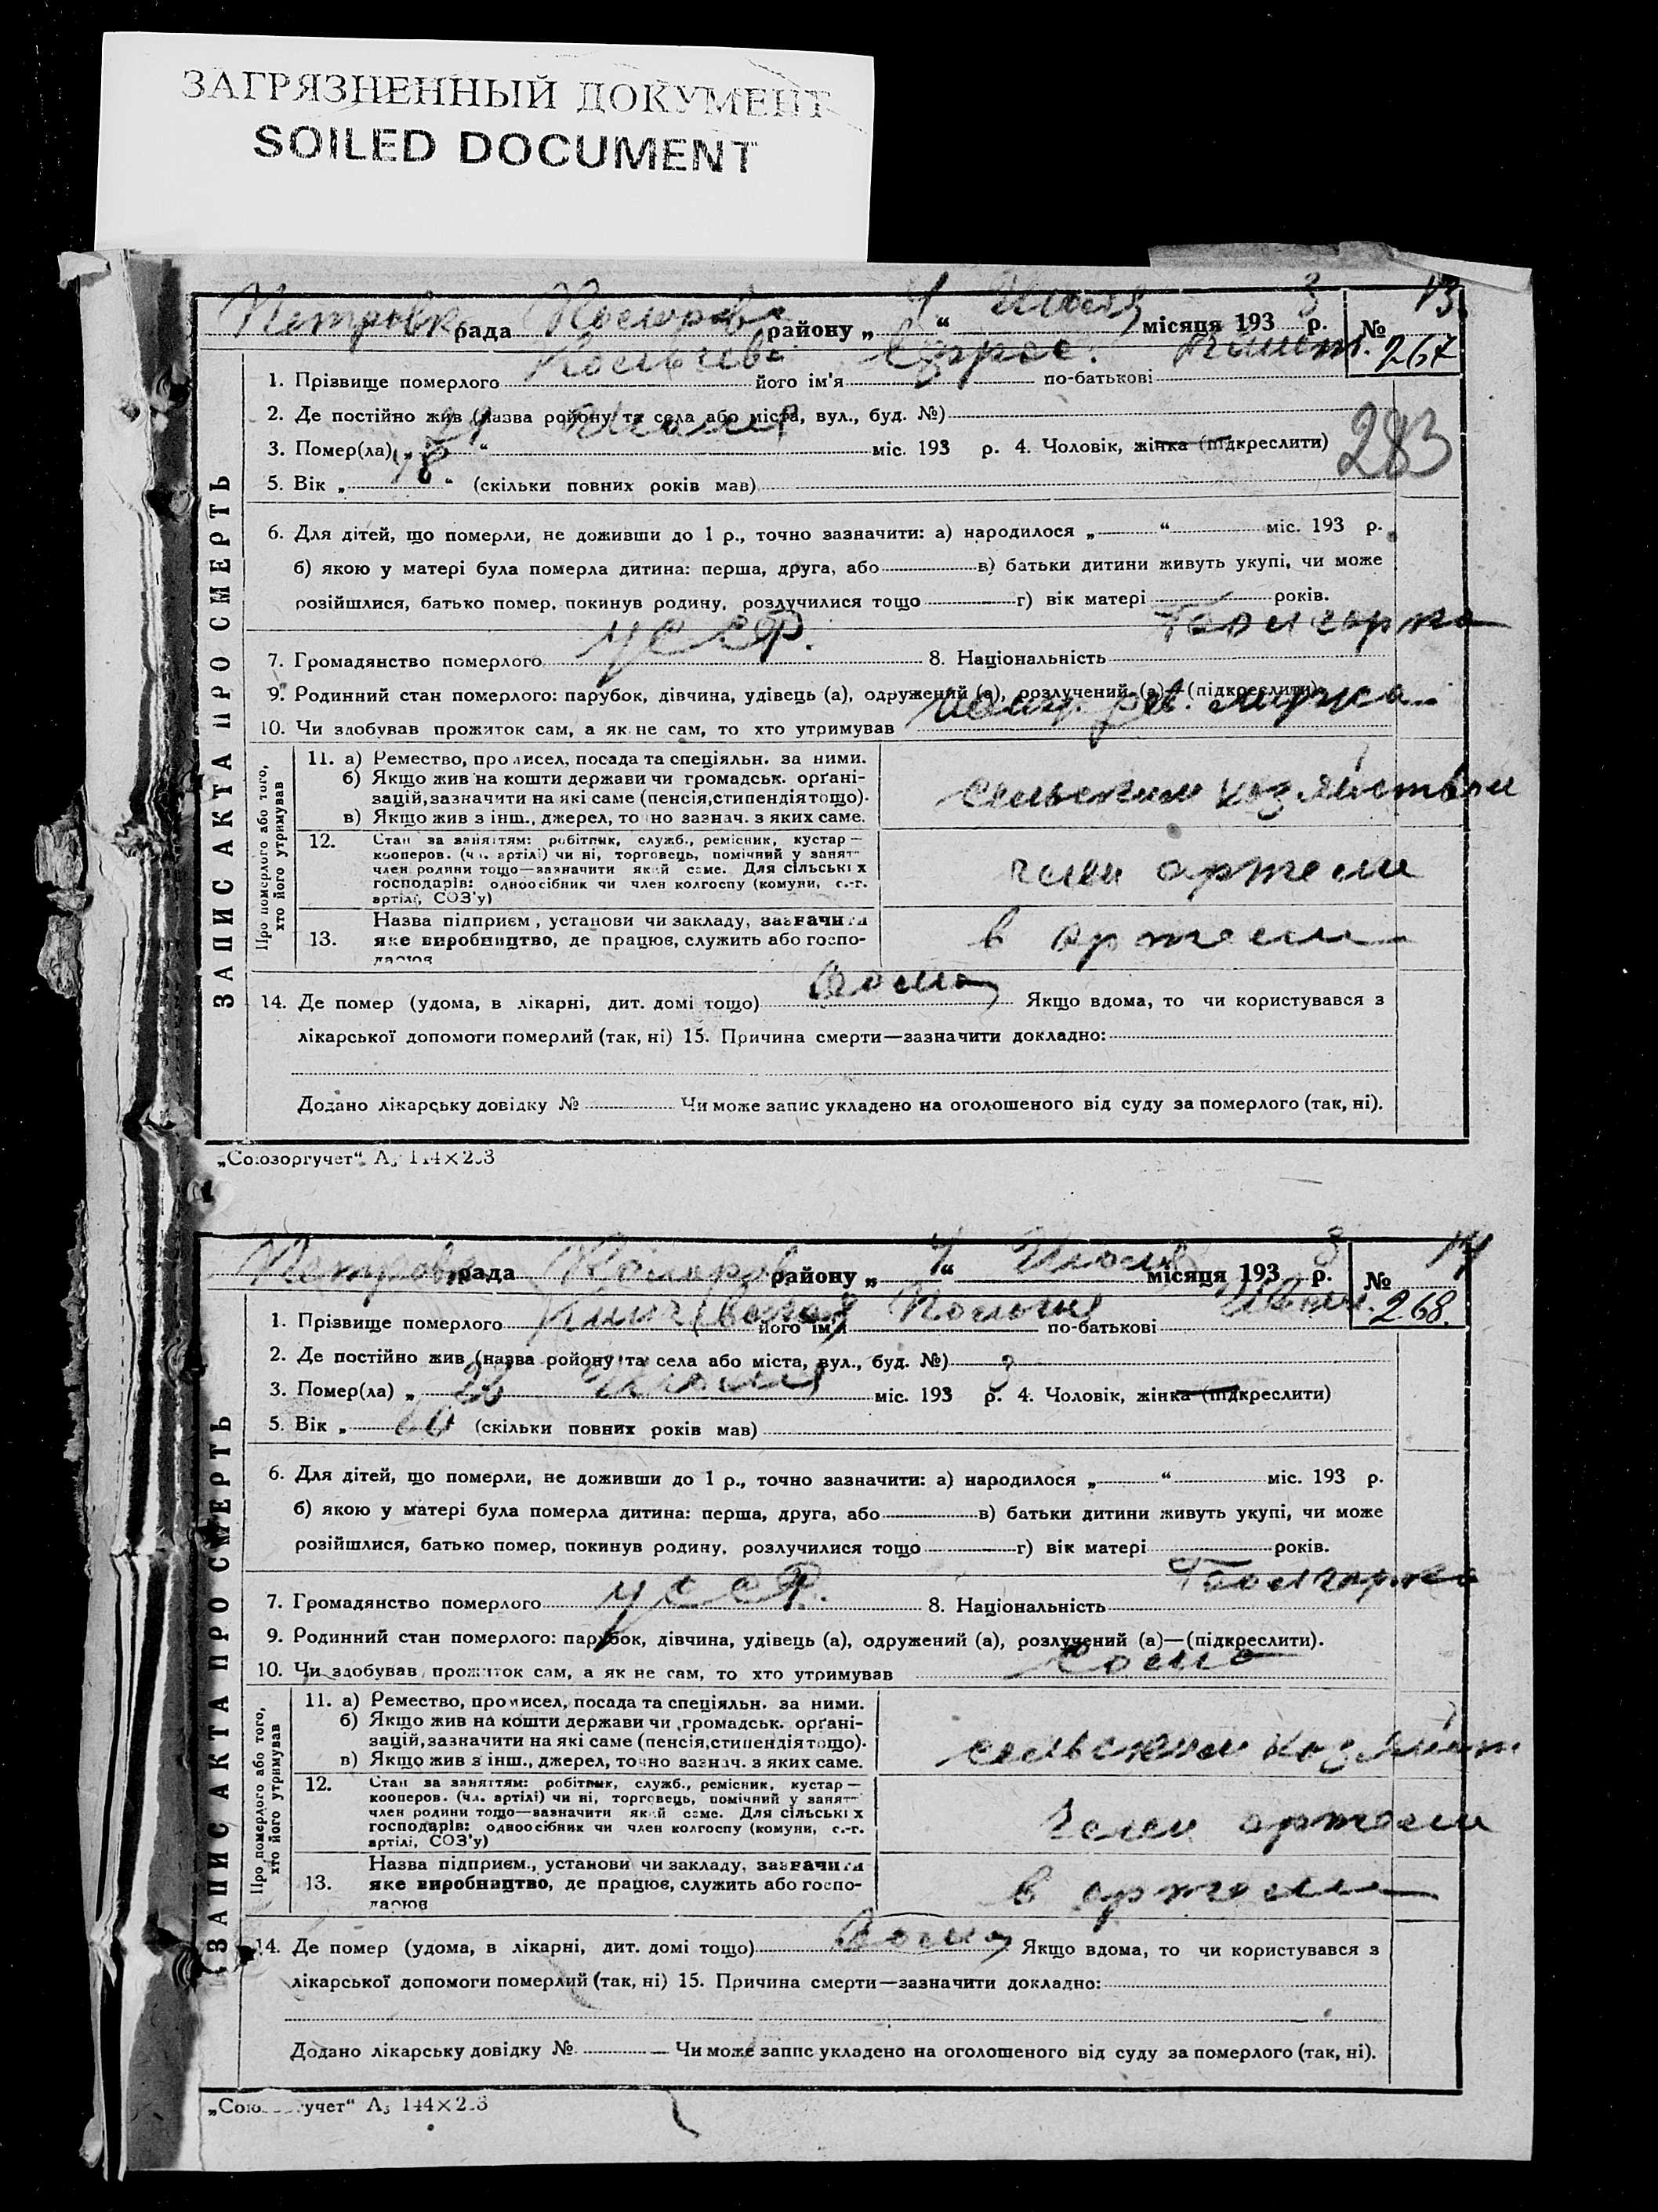 ЗАГРЯЗНЕННЫЙ ДОКУМЕНТ
SOILED DOCUMENT
рада району „ 4 “ місяця 193 3 р. № 13
267
1. Прізвище померлого його ім'я по-батькові
2. Де постійно жив (назва ройону та села або міста, вул., буд. №)
3. Помер(ла) „ “ міс. 193 р. 4. Чоловік, жінка (підкреслити)
283
5. Вік „ “ (скільки повних років мав)
6. Для дітей, що померли, не доживши до 1 р., точно зазначити: а) народилося „ “ міс. 193 р.
б) якою у матері була померла дитина: перша, друга, або в) батьки дитини живуть укупі, чи може
розійшлися, батько помер, покинув родину, розлучилися тощо г) вік матері років.
7. Громадянство померлого УССР. 8. Національність Болгарка
9. Родинний стан померлого: парубок, дівчина, удівець (а), одружений (а), розлучений (а)—(підкреслити).
10. Чи здобував прожиток сам, а як не сам, то хто утримував
ЗАПИС АКТА ПРО СМЕРТЬ
Про померлого або того, хто його утримував
11. а) Ремество, промисел, посада та спеціяльн. за ними.
б) Якщо жив на кошти держави чи громадськ. орґані-
зацій, зазначити на які саме (пенсія, стипендія тощо).
в) Якщо жив з інш., джерел, точно зазнач. з яких саме.
сельским хозяйством
12. Стан за заняттям: робітник, служб., ремісник, кустар—
кооперов. (чл. артілі) чи ні, торговець, помічний у занят—
член родини тощо—зазначити який саме. Для сільських
господарів: одноосібник чи член колгоспу (комуни, с.-г.
артілі, СОЗ'у)
член артели
Назва підприєм., установи чи закладу, зазначити
13. яке виробництво, де працює, служить або госпо-
дарює
в артели
14. Де помер (удома, в лікарні, дит. домі тощо) Дома Якщо вдома, то чи користувався з
лікарської допомоги померлий (так, ні) 15. Причина смерти—зазначити докладно:
Додано лікарську довідку № Чи може запис укладено на оголошеного від суду за померлого (так, ні).
„Союзоргучет“ А₅ 144×203
рада району „ 4 “ місяця 193 3 р. № 14
268.
1. Прізвище померлого його ім'я по-батькові
2. Де постійно жив (назва ройону та села або міста, вул., буд. №)
3. Помер(ла) „ міс. 193 3 р. 4. Чоловік, жінка (підкреслити)
5. Вік „ (скільки повних років мав)
6. Для дітей, що померли, не доживши до 1 р., точно зазначити: а) народилося „ “ міс. 193 р.
б) якою у матері була померла дитина: перша, друга, або в) батьки дитини живуть укупі, чи може
розійшлися, батько помер, покинув родину, розлучилися тощо г) вік матері років.
7. Громадянство померлого УССР. 8. Національність Болгарка
9. Родинний стан померлого: парубок, дівчина, удівець (а), одружений (а), розлучений (а)—(підкреслити).
10. Чи здобував прожиток сам, а як не сам, то хто утримував
ЗАПИС АКТА ПРО СМЕРТЬ
Про померлого або того, хто його утримував
11. а) Ремество, промисел, посада та спеціяльн. за ними.
б) Якщо жив на кошти держави чи громадськ. орґані-
зацій, зазначити на які саме (пенсія, стипендія тощо).
в) Якщо жив з інш., джерел, точно зазнач. з яких саме.
сельским
12. Стан за заняттям: робітник, служб., ремісник, кустар—
кооперов. (чл. артілі) чи ні, торговець, помічний у занят—
член родини тощо—зазначити який саме. Для сільських
господарів: одноосібник чи член колгоспу (комуни, с.-г.
артілі, СОЗ'у)
член артели
Назва підприєм., установи чи закладу, зазначити
13. яке виробництво, де працює, служить або госпо-
дарює
в артели
14. Де помер (удома, в лікарні, дит. домі тощо) Дома Якщо вдома, то чи користувався з
лікарської допомоги померлий (так, ні) 15. Причина смерти—зазначити докладно:
Додано лікарську довідку № Чи може запис укладено на оголошеного від суду за померлого (так, ні).
„Союзоргучет“ А₅ 144×203